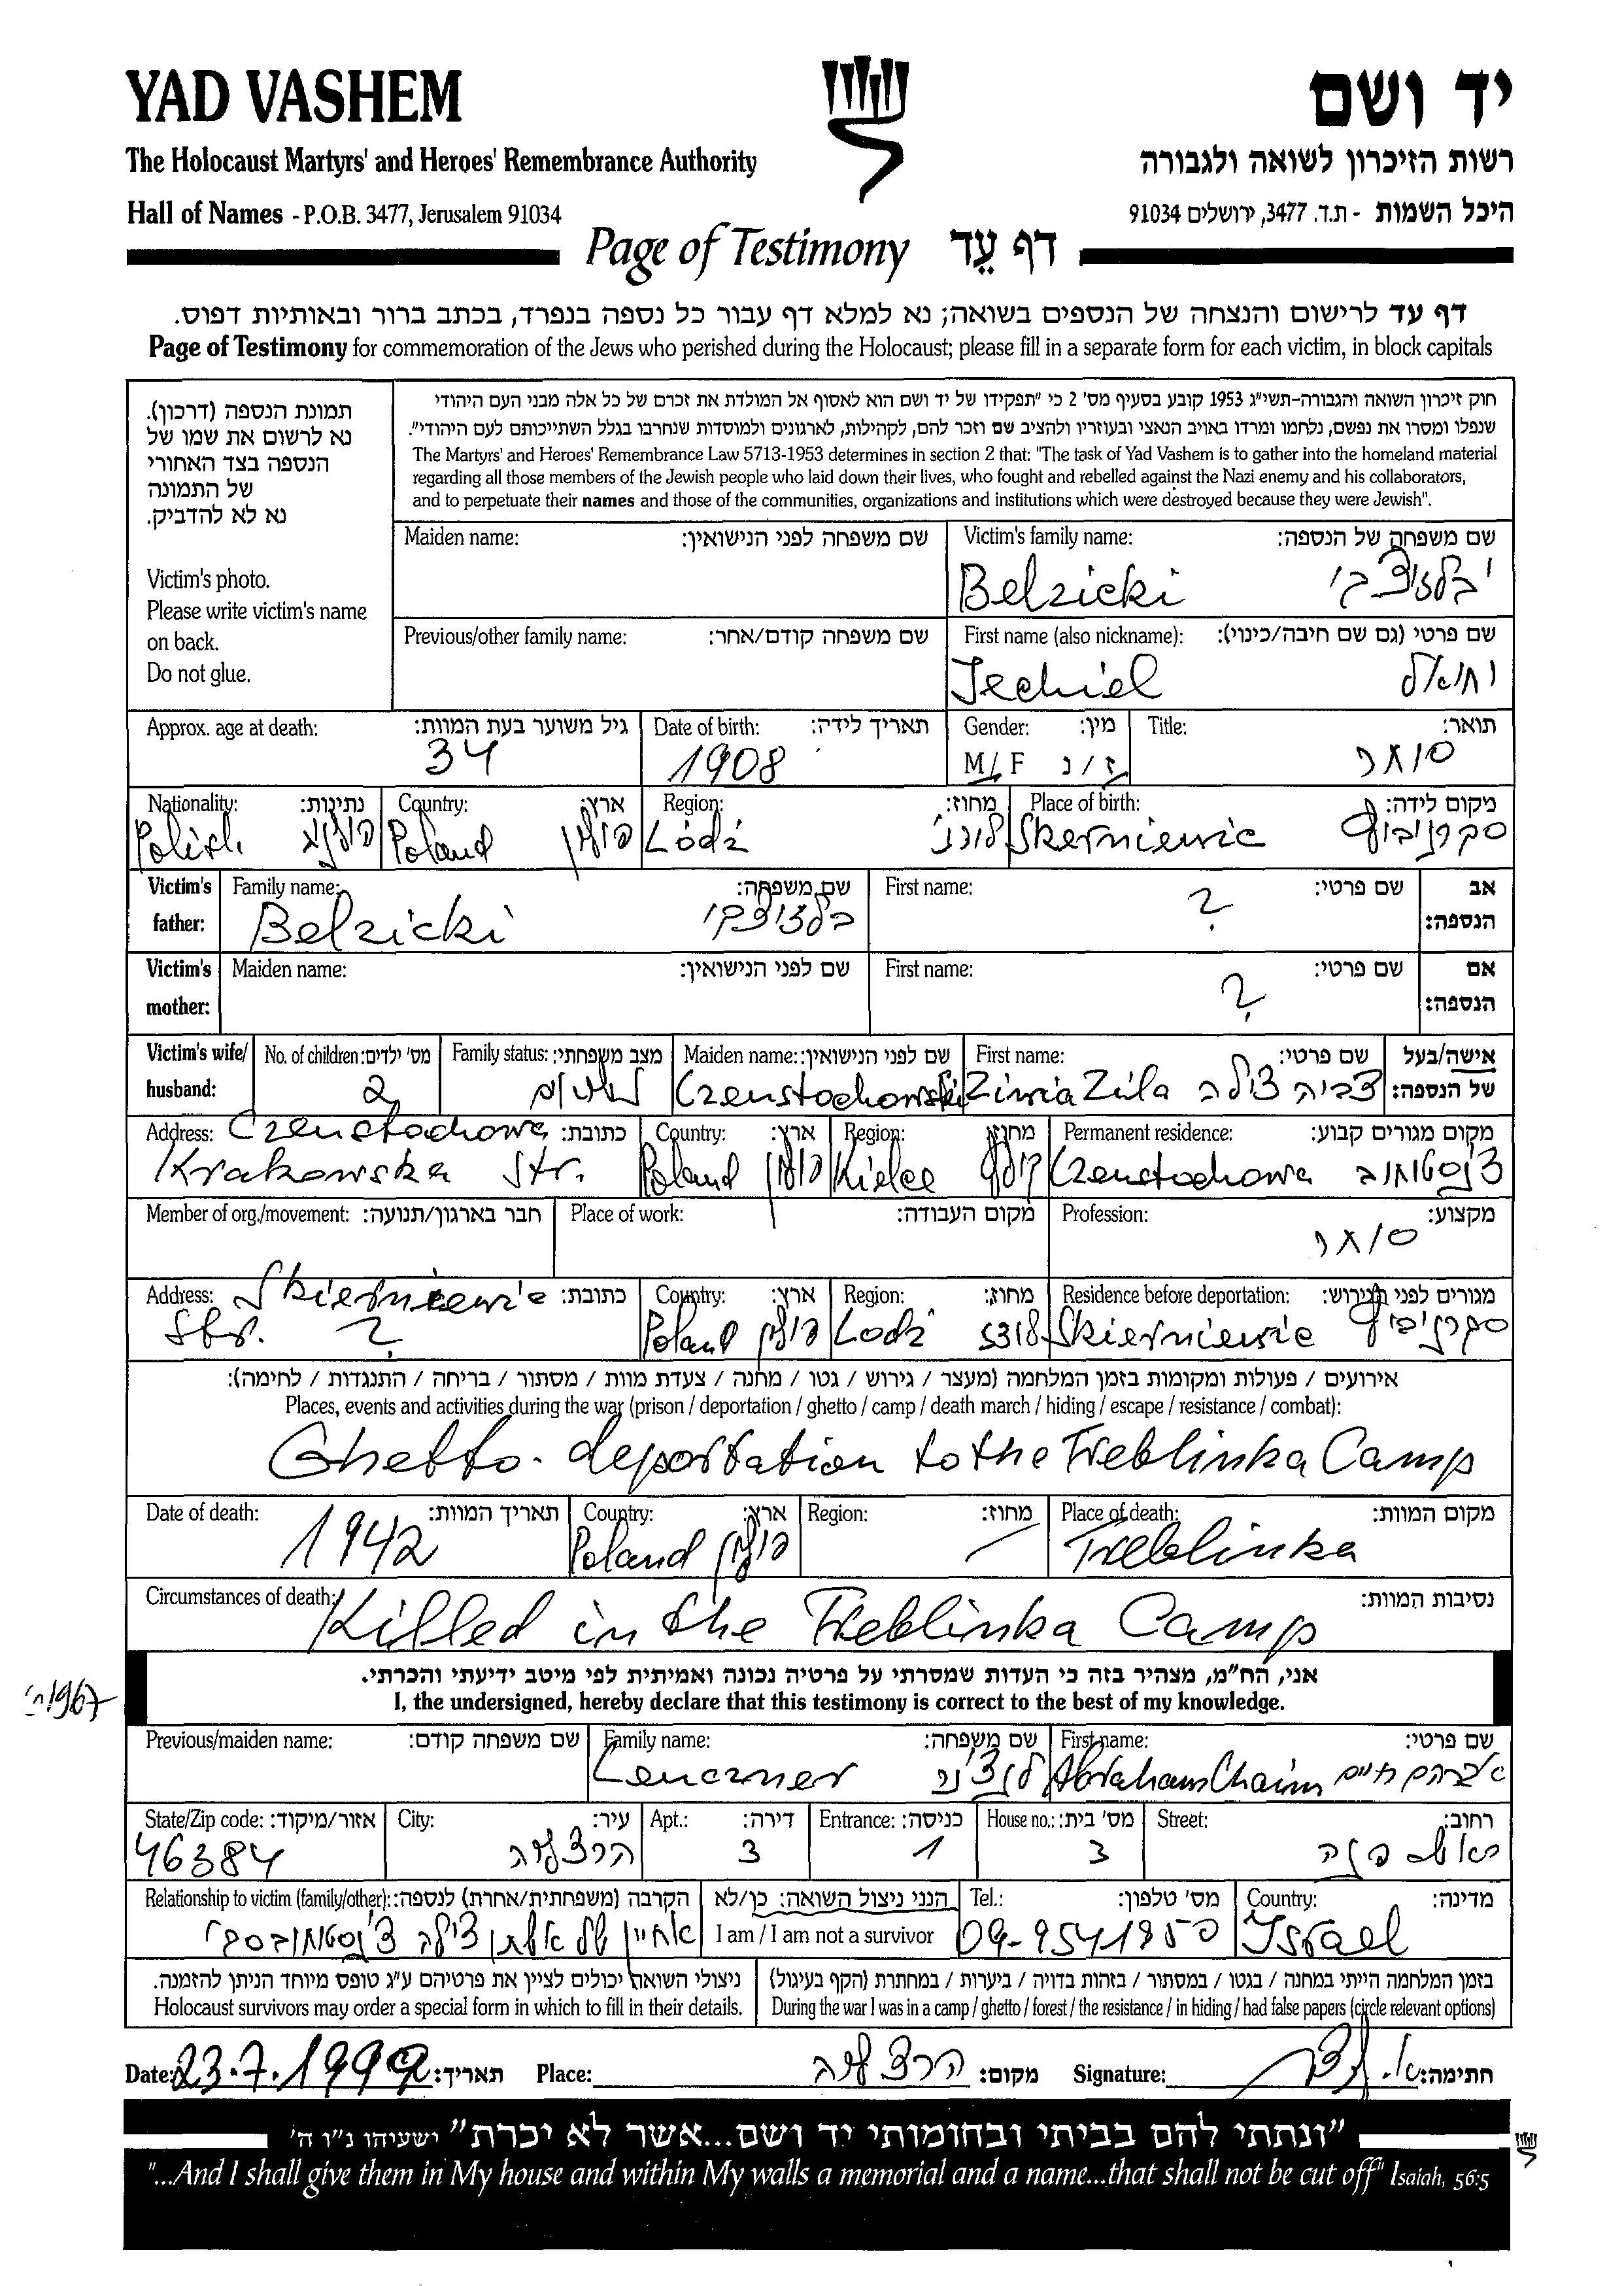 YAD VASHEM
יד ושם
The Holocaust Martyrs' and Heroes' Remembrance Authority
רשות הזיכרון לשואה ולגבורה
Hall of Names - P.O.B. 3477, Jerusalem 91034
היכל השמות - ת.ד. 3477, ירושלים 91034
Page of Testimony דף עֵד
דף עד לרישום והנצחה של הנספים בשואה; נא למלא דף עבור כל נספה בנפרד, בכתב ברור ובאותיות דפוס.
Page of Testimony for commemoration of the Jews who perished during the Holocaust; please fill in a separate form for each victim, in block capitals
תמונת הנספה (דרכון).
נא לרשום את שמו של
הנספה בצד האחורי
של התמונה
נא לא להדביק.
Victim's photo.
Please write victim's name
on back.
Do not glue.
חוק זיכרון השואה והגבורה-תשי"ג 1953 קובע בסעיף מס' 2 כי "תפקידו של יד ושם הוא לאסוף אל המולדת את זכרם של כל אלה מבני העם היהודי
שנפלו ומסרו את נפשם, נלחמו ומרדו באויב הנאצי ובעוזריו ולהציב שם וזכר להם, לקהילות, לארגונים ולמוסדות שנחרבו בגלל השתייכותם לעם היהודי".
The Martyrs' and Heroes' Remembrance Law 5713-1953 determines in section 2 that: "The task of Yad Vashem is to gather into the homeland material
regarding all those members of the Jewish people who laid down their lives, who fought and rebelled against the Nazi enemy and his collaborators,
and to perpetuate their names and those of the communities, organizations and institutions which were destroyed because they were Jewish".
Maiden name: שם משפחה לפני הנישואין:
Victim's family name: שם משפחה של הנספה:
Belzicki בלזיצקי
Previous/other family name: שם משפחה קודם/אחר:
First name (also nickname): שם פרטי (גם שם חיבה/כינוי):
Jechiel יחיאל
Approx. age at death: גיל משוער בעת המוות:
34
Date of birth: תאריך לידה:
1908
Gender: מין:
M/F ז/נ
Title: תואר:
סוחר
Nationality: נתינות:
Polish פולנית
Country: ארץ:
Poland פולין
Region: מחוז:
Lódź לודג'
Place of birth: מקום לידה:
Skerniewic סקרניביץ
Victim's father: אב הנספה:
Family name: שם משפחה:
Belzicki בלזיצקי
First name: שם פרטי:
?
Victim's mother: אם הנספה:
Maiden name: שם לפני הנישואין:
First name: שם פרטי:
?
Victim's wife/ husband: אישה/בעל של הנספה:
No. of children: מס' ילדים:
2
Family status: מצב משפחתי:
נשוי
Maiden name: שם לפני הנישואין:
Czenstochowski
First name: שם פרטי:
Ziwia Zila צביה צילה
Address: כתובת:
Czenstochowa
Krakowska Str.
Country: ארץ:
Poland פולין
Region: מחוז:
Kielce קילץ
Permanent residence: מקום מגורים קבוע:
Czenstochowa צ'נסטוחוב
Member of org./movement: חבר בארגון/תנועה:
Place of work: מקום העבודה:
Profession: מקצוע:
סוחר
Address: כתובת:
Skierniewic
Str. ?
Country: ארץ:
Poland פולין
Region: מחוז:
Lodź לודז
Residence before deportation: מגורים לפני הגירוש:
Skierniewic סקרניביץ
אירועים / פעולות ומקומות בזמן המלחמה (מעצר / גירוש / גטו / מחנה / צעדת מוות / מסתור / בריחה / התנגדות / לחימה):
Places, events and activities during the war (prison / deportation / ghetto / camp / death march / hiding / escape / resistance / combat):
Ghetto - deportation to the Treblinka Camp
Date of death: תאריך המוות:
1942
Country: ארץ:
Poland פולין
Region: מחוז:
Place of death: מקום המוות:
Treblinka
Circumstances of death: נסיבות המוות:
Killed in the Treblinka Camp
אני, הח"מ, מצהיר בזה כי העדות שמסרתי על פרטיה נכונה ואמיתית לפי מיטב ידיעתי והכרתי.
I, the undersigned, hereby declare that this testimony is correct to the best of my knowledge.
1967
Previous/maiden name: שם משפחה קודם:
Family name: שם משפחה:
Lenczner לנצ'נר
First name: שם פרטי:
Abraham Chaim אברהם חיים
State/Zip code: אזור/מיקוד:
46384
City: עיר:
הרצליה
Apt.: דירה:
3
Entrance: כניסה:
1
House no.: מס' בית:
3
Street: רחוב:
ראש פנה
Relationship to victim (family/other): הקרבה (משפחתית/אחרת) לנספה:
אחיין של אשתו צילה צ'נסטוחובסקי
הנני ניצול השואה: כן/לא
I am / I am not a survivor
Tel.: מס' טלפון:
09-9541950
Country: מדינה:
Israel
ניצולי השואה יכולים לציין את פרטיהם ע"ג טופס מיוחד הניתן להזמנה.
Holocaust survivors may order a special form in which to fill in their details.
בזמן המלחמה הייתי במחנה / בגטו / במסתור / בזהות בדויה / ביערות / במחתרת (הקף בעיגול)
During the war I was in a camp / ghetto / forest / the resistance / in hiding / had false papers (circle relevant options)
Date: 23.7.1999 תאריך: Place: הרצליה מקום: Signature: חתימה:
"ונתתי להם בביתי ובחומותי יד ושם...אשר לא יכרת" ישעיהו נ"ו ה'
"...And I shall give them in My house and within My walls a memorial and a name...that shall not be cut off" Isaiah, 56:5